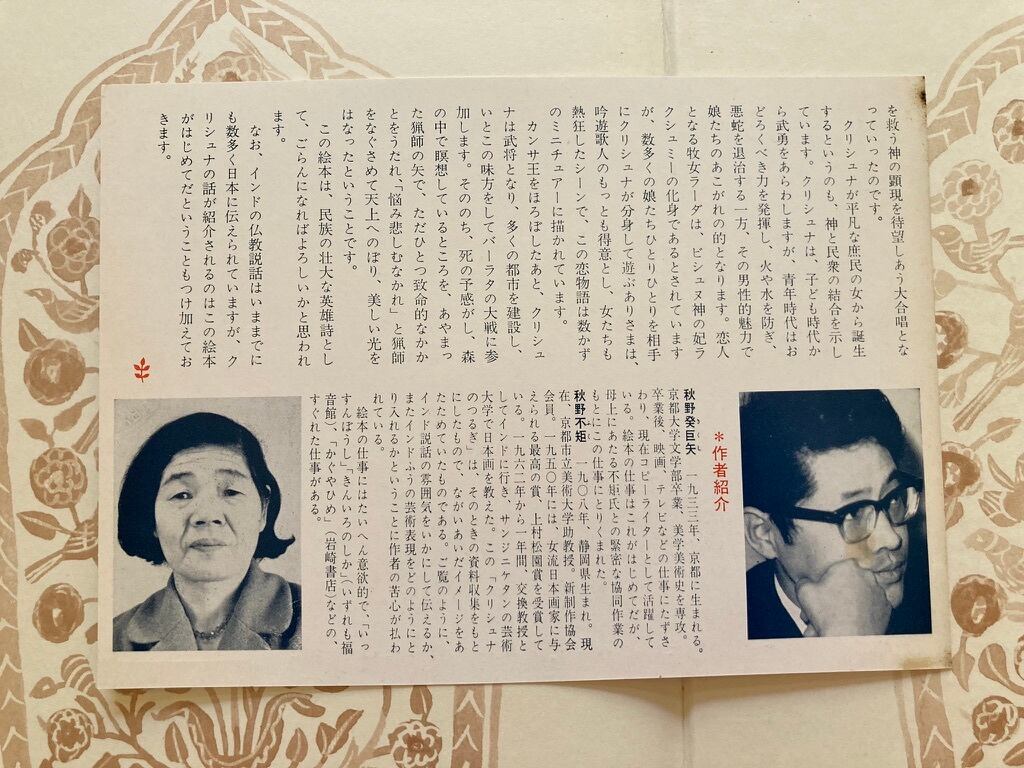 を救う神の顕現を待望しあう大合唱とな
っていったのです。
クリシュナが平凡な庶民の女から誕生
するというのも、神と民衆の結合を示し
ています。クリシュナは、子ども時代か
ら武勇をあらわしますが、青年時代はお
どろくべき力を発揮し、火や水を防ぎ、
悪蛇を退治する一方、その男性的魅力で
娘たちのあこがれの的となります。恋人
となる牧女ラーダは、ビシュヌ神の妃ラ
クシュミーの化身であるとされています
が、数多くの娘たちひとりひとりを相手
にクリシュナが分身して遊ぶありさまは、
吟遊歌人のもっとも得意とし、女たちも
熱狂したシーンで、この恋物語は数かず
のミニチュアーに描かれています。
カンサ王をほろぼしたあと、クリシュ
ナは武将となり、多くの都市を建設し、
いとこの味方をしてバーラタの大戦に参
加します。そののち、死の予感がし、森
の中で瞑想しているところを、あやまっ
た猟師の矢で、ただひとつ致命的なかか
とをうたれ、「悩み悲しむなかれ」と猟師
をなぐさめて天上へのぼり、美しい光を
はなったということです。
この絵本は、民族の壮大な英雄詩とし
て、ごらんになればよろしいかと思われ
ます。
なお、インドの仏教説話はいままでに
も数多く日本に伝えられていますが、ク
リシュナの話が紹介されるのはこの絵本
がはじめてだということもつけ加えてお
きます。
*作者紹介
秋野癸巨矢 一九三三年、京都に生まれる。
京都大学文学部卒業、美学美術史を専攻。
卒業後、映画、テレビなどの仕事にたずさ
わり、現在コピーライターとして活躍して
いる。絵本の仕事はこれがはじめてだが、
母上にあたる不矩氏との緊密な協同作業の
もとにこの仕事にとりくまれた。
秋野不矩 一九〇八年、静岡県生まれ。現
在、京都市立美術大学助教授。新制作協会
会員。一九五〇年には、女流日本画家に与
えられる最高の賞、上村松園賞を受賞して
いる。一九六二年から一年間、交換教授と
してインドに行き、サンジニケタンの芸術
大学で日本画を教えた。この「クリシュナ
のつるぎ」は、そのときの資料収集をもと
にしたもので、ながいあいだイメージをあ
たためていたものである。ご覧のように、
インド説話の雰囲気をいかにして伝えるか、
またインドふうの芸術表現をどのようにと
り入れるかということに作者の苦心が払わ
れている。
絵本の仕事にはたいへん意欲的で、「いっ
すんぼうし」「きんいろのしか」（いずれも福
音館）、「かぐやひめ」（岩崎書店）などの、
すぐれた仕事がある。